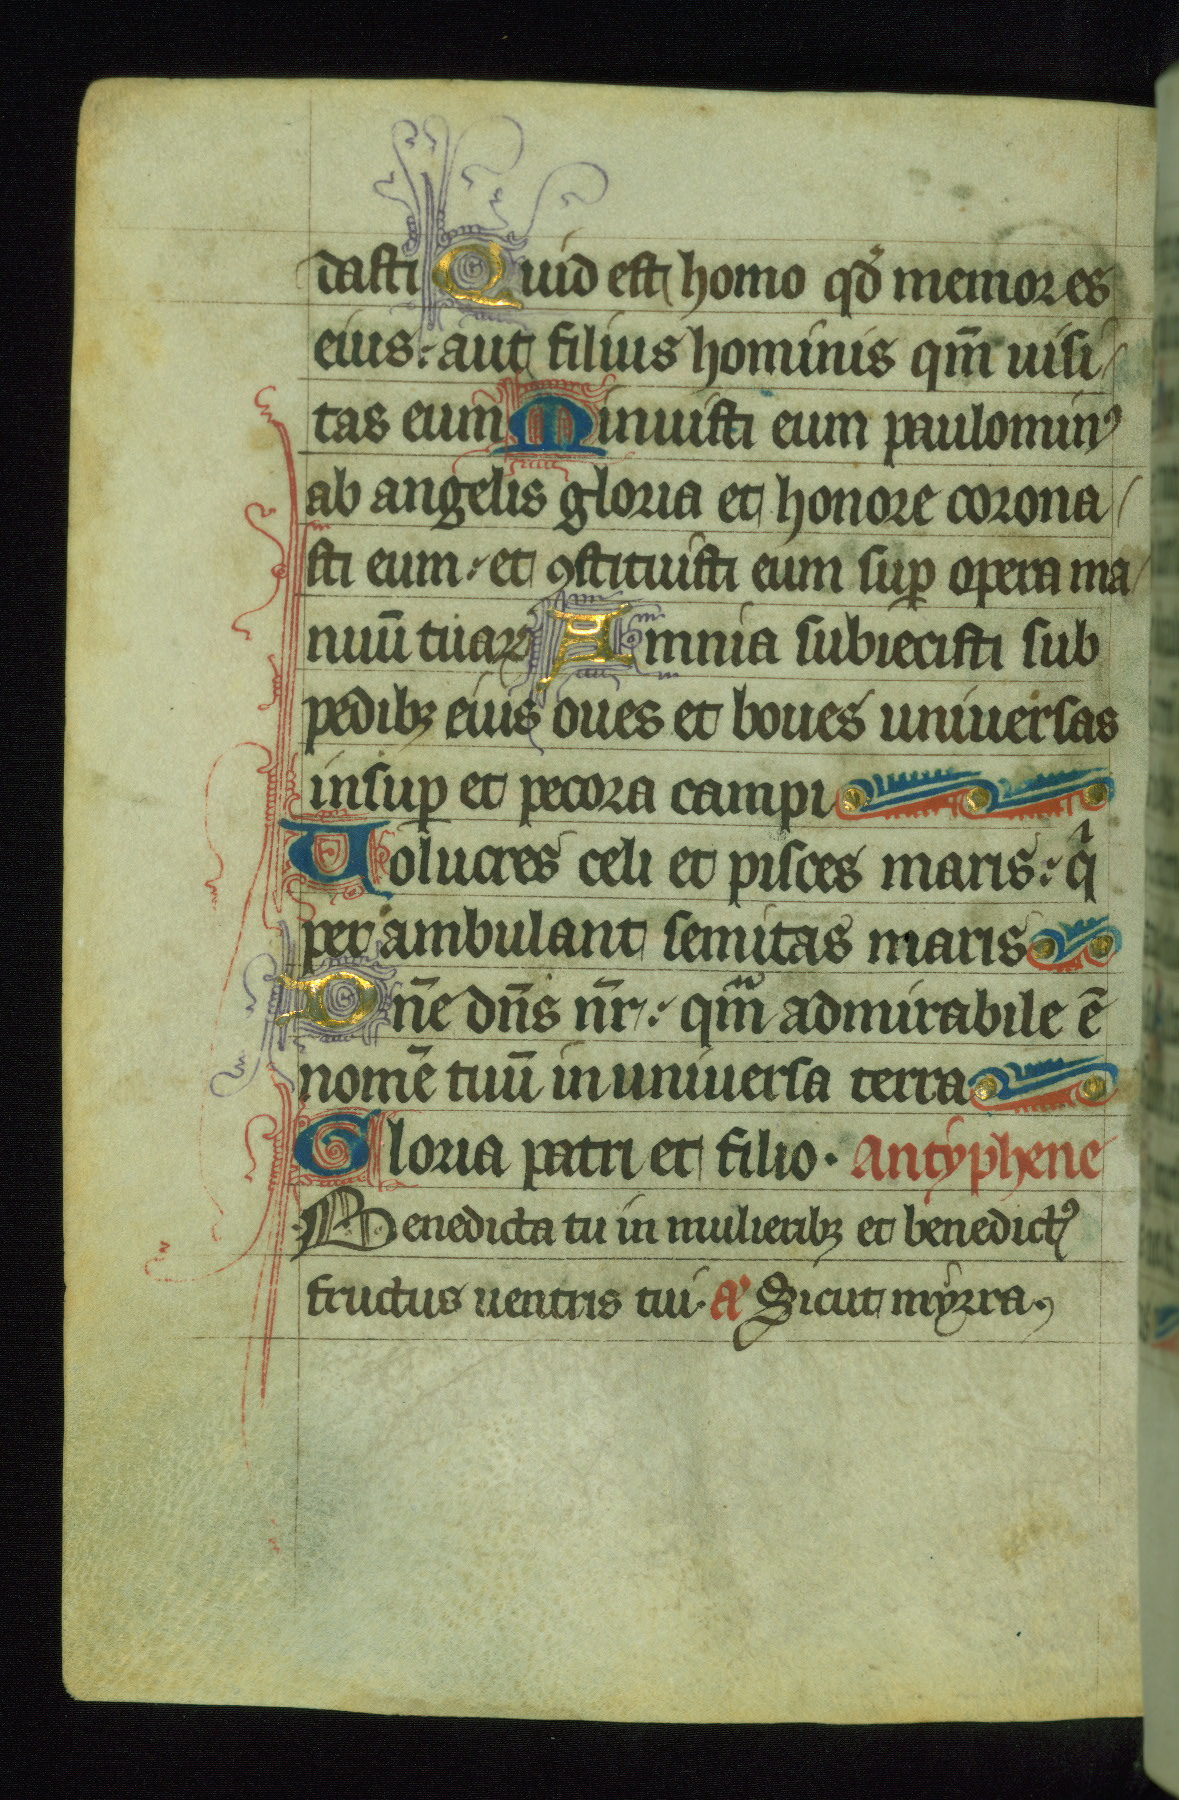 dasti Quid est homo qđ memor es
eius: aut filius hominis qm̄ uisi/
tas eum Minuisti eum paulominꝰ
ab angelis gloria et honore corona/
sti eum: et ꝯstituisti eum suꝑ opera ma/
nuū tuaꝝ Amnia subiecisti sub
pedibꝫ eius oues et boues uniuersas
insuꝑ et pecora campi
Uolucres celi et pisces maris: qͥ
per ambulant semitas maris
Dn̄e dn̄s nr̄: qm̄ admirabile ē
nomē tuū in uniuersa terra
Gloria patri et filio. Antyphene
Benedicta tu in mulieribꝫ et benedictꝰ
fructus uentris tui. aͦ Sicut myrra.